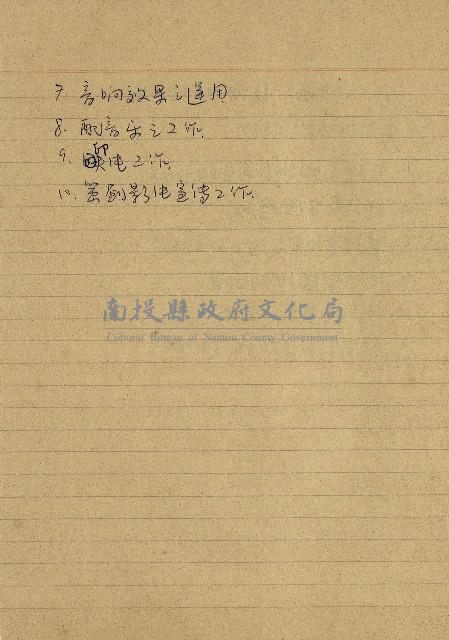 7. 音响效果之運用
8. 配音乐之工作.
9. 印工作.
10. 策劃影片宣传工作.
南投縣政府文化局
Cultural Bureau of Nantou County Government